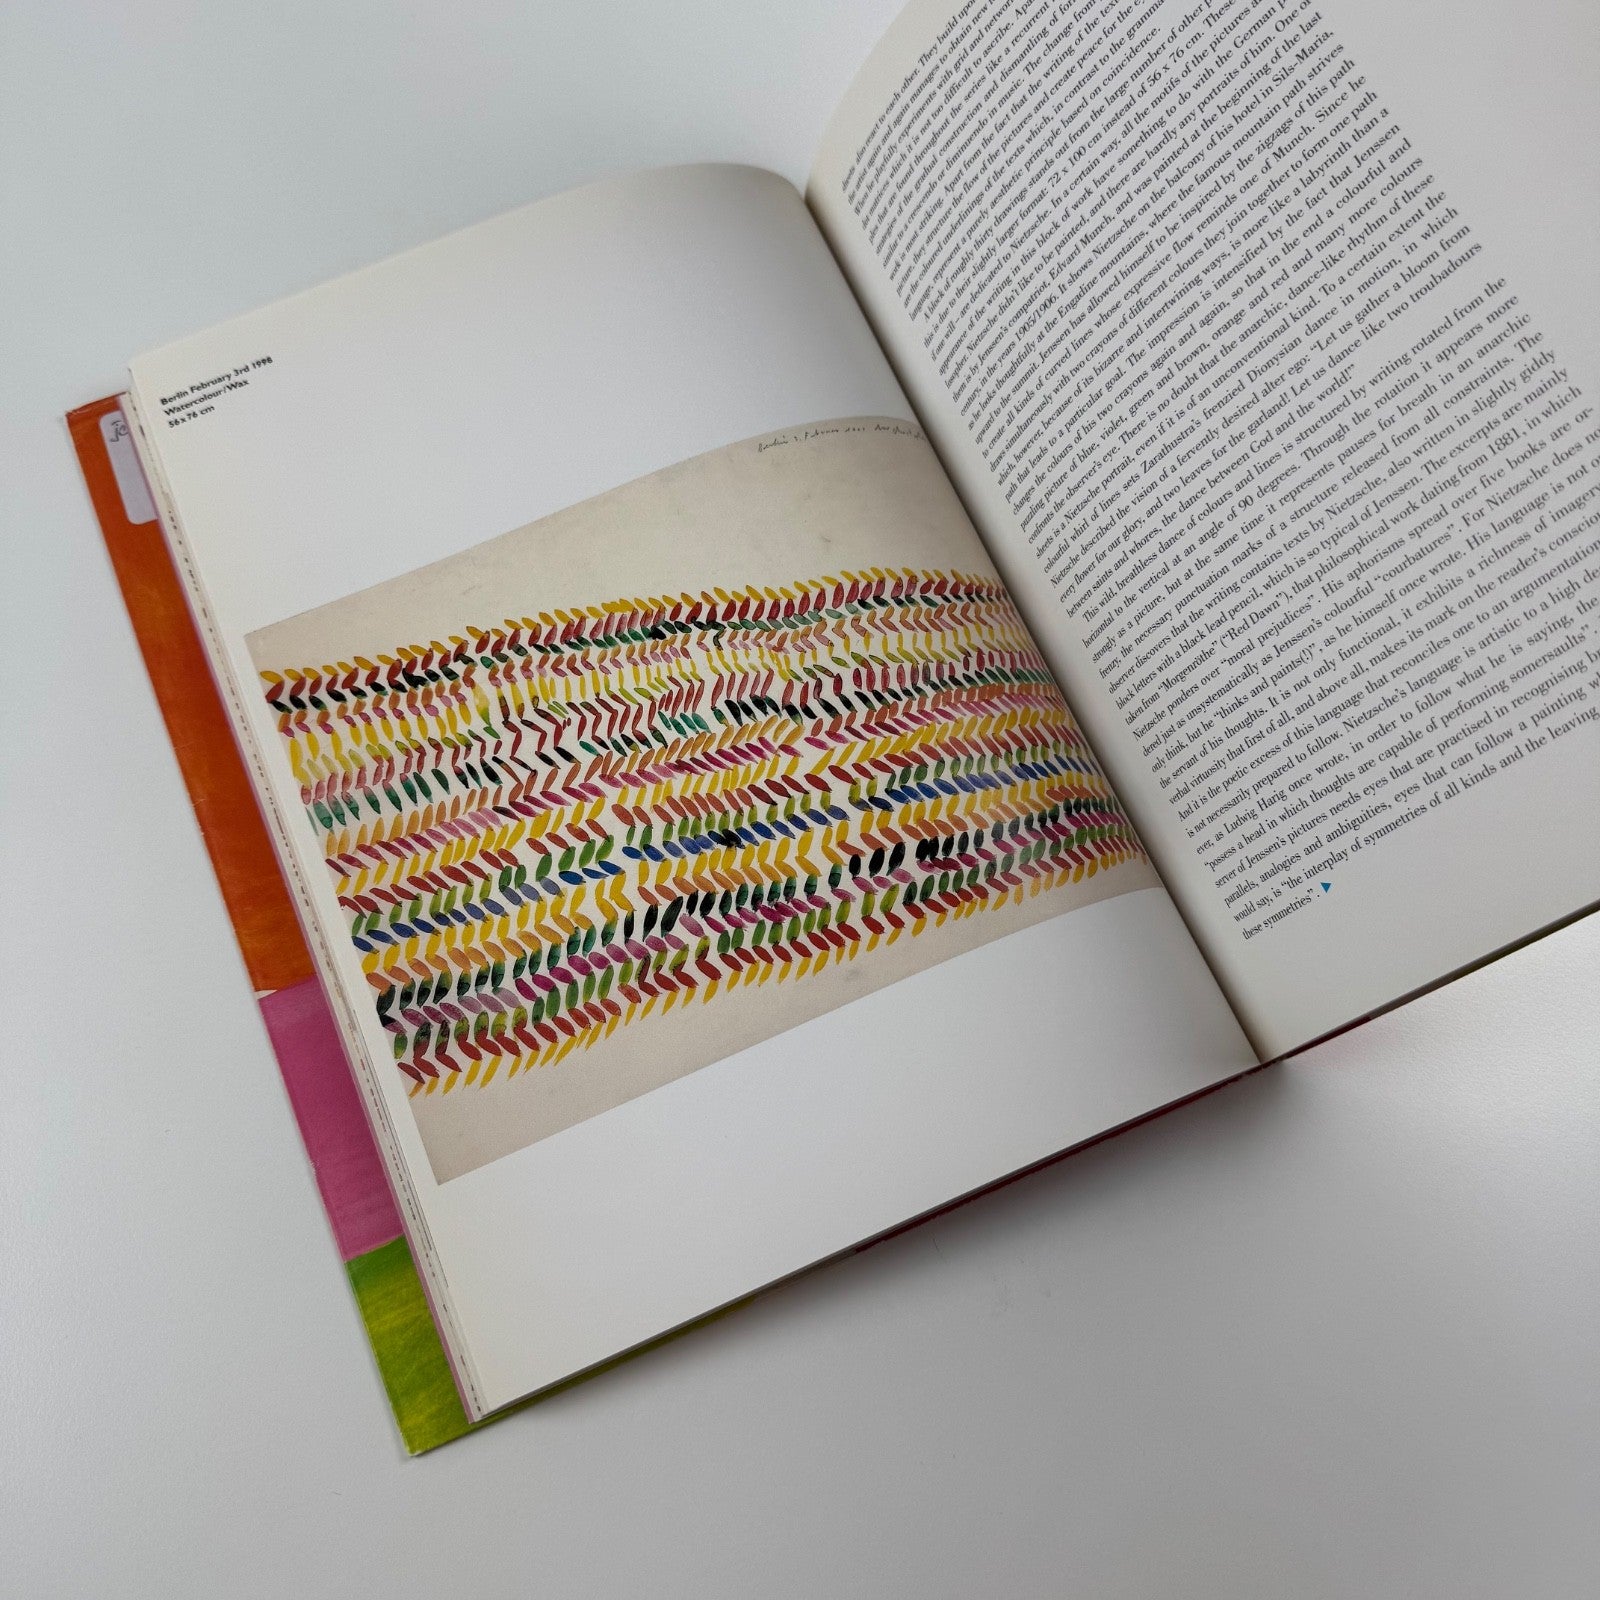 Berlin February 3rd 1998
Watercolour/Wax
56 x 76 cm
Berlin 3. Februar
also react to each other. They build upon
the artist again and again manages to obtain new
When he playfully experiments with grid and
which it is not too difficult to ascribe.
that are found throughout the series like a recurrent
of the gradual construction and dismantling of
similar to a crescendo or diminuendo in music. The change from
work is most striking. Apart from the fact that the writing of the text
picture, they structure the flow of the pictures and create peace for the
are the coloured underlinings of the texts which, in contrast to the
language, represent a purely aesthetic principle based on coincidence.
A block of roughly thirty drawings stands out from the large number of other
this is due to their slightly larger format: 72 x 100 cm instead of 56 x 76 cm. These
if one will – are dedicated to Nietzsche. In a certain way, all the motifs of the pictures
appearance of the writing in this block of work have something to do with the German
losopher. Nietzsche didn't like to be painted, and there are hardly any portraits of him. One of
them is by Jenssen's compatriot, Edvard Munch, and was painted at the beginning of the last
century, in the years 1905/1906. It shows Nietzsche on the balcony of his hotel in Sils-Maria,
as he looks thoughtfully at the Engadine mountains, where the famous mountain path strives
upward to the summit. Jenssen has allowed himself to be inspired by the zigzags of this path
to create all kinds of curved lines whose expressive flow reminds one of Munch. Since he
draws simultaneously with two crayons of different colours they join together to form one path
which, however, because of its bizarre and intertwining ways, is more like a labyrinth than a
path that leads to a particular goal. The impression is intensified by the fact that Jenssen
changes the colours of his two crayons again and again, so that in the end a colourful and
puzzling picture of blue, violet, green and brown, orange and red and many more colours
confronts the observer's eye. There is no doubt that the anarchic, dance-like rhythm of these
sheets is a Nietzsche portrait, even if it is of an unconventional kind. To a certain extent the
colourful whirl of lines sets Zarathustra's frenzied Dionysian dance in motion, in which
Nietzsche described the vision of a fervently desired alter ego: "Let us gather a bloom from
every flower for our glory, and two leaves for the garland! Let us dance like two troubadours
between saints and whores, the dance between God and the world!"
This wild, breathless dance of colours and lines is structured by writing rotated from the
horizontal to the vertical at an angle of 90 degrees. Through the rotation it appears more
strongly as a picture, but at the same time it represents pauses for breath in an anarchic
frenzy, the necessary punctuation marks of a structure released from all constraints. The
observer discovers that the writing contains texts by Nietzsche, also written in slightly giddy
block letters with a black lead pencil, which is so typical of Jenssen. The excerpts are mainly
taken from "Morgenröthe" ("Red Dawn"), that philosophical work dating from 1881, in which
Nietzsche ponders over "moral prejudices". His aphorisms spread over five books are or-
dered just as unsystematically as Jenssen's colourful "courbatures". For Nietzsche does no
only think, but he "thinks and paints(!)", as he himself once wrote. His language is not on
the servant of his thoughts. It is not only functional, it exhibits a richness of imagery
verbal virtuosity that first of all, and above all, makes its mark on the reader's conscious
And it is the poetic excess of this language that reconciles one to an argumentation
is not necessarily prepared to follow. Nietzsche's language is artistic to a high de
ever, as Ludwig Harig once wrote, in order to follow what he is saying, the
"possess a head in which thoughts are capable of performing somersaults".
server of Jenssen's pictures needs eyes that are practised in recognising
parallels, analogies and ambiguities, eyes that can follow a painting
would say, is "the interplay of symmetries of all kinds and the leaving
these symmetries".